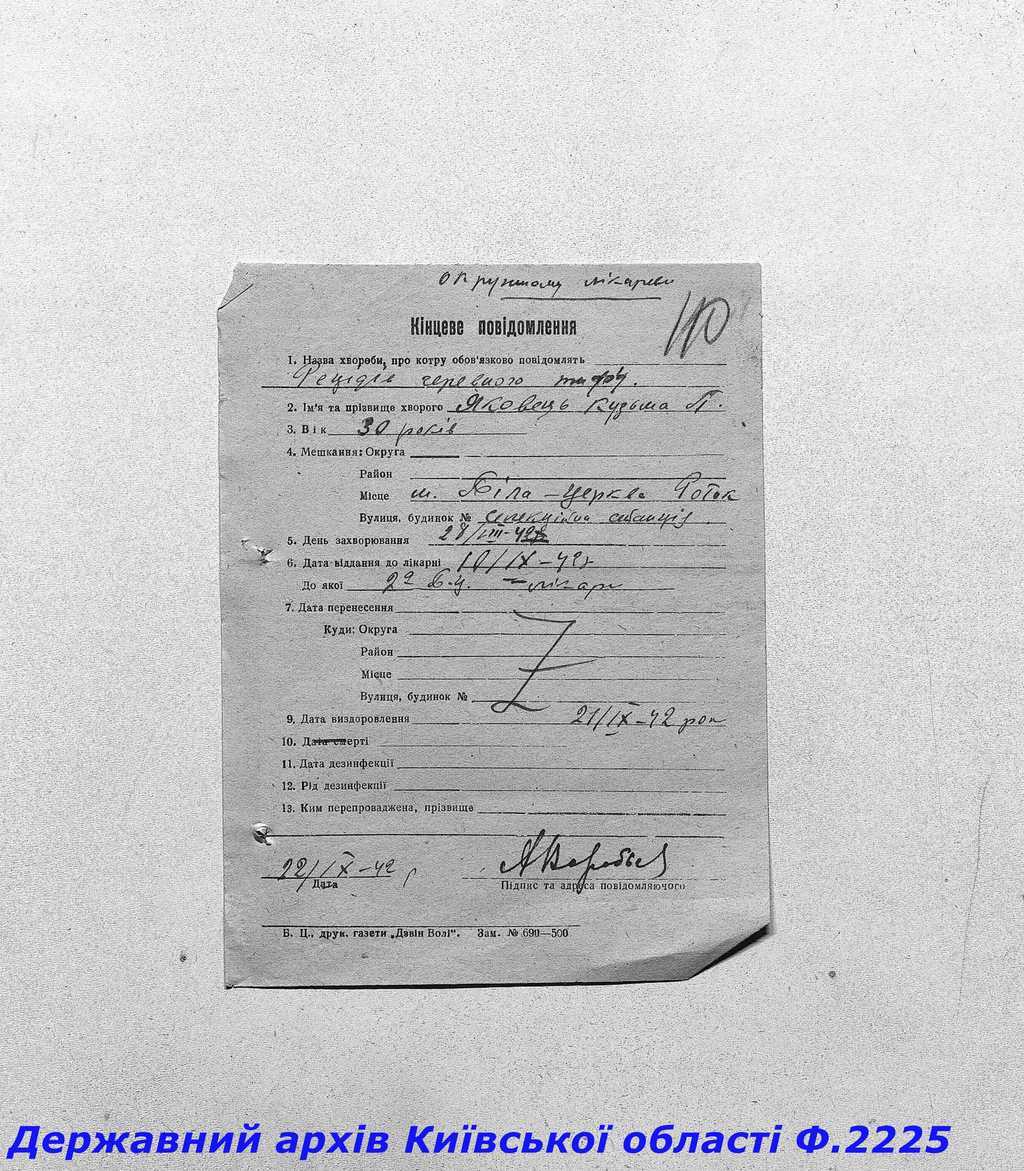 Окружному лікареві
110
Кінцеве повідомлення
1. Назва хвороби, про котру обов'язково повідомлять
Рецідів черевного тифу.
2. Ім'я та прізвище хворого Яковець Кузьма П.
3. Вік 30 років
4. Мешкання: Округа
Район
Місце м. Біла-Церква Роток
Вулиця, будинок № Селекційна станція.
5. День захворювання 28/VIII-42р
6. Дата віддання до лікарні 10/IX-42р
До якої 2а Б.Ц. лікарн
7. Дата перенесення
Куди: Округа
Район
Місце
Вулиця, будинок №
9. Дата виздоровлення 21/IX-42 рок
10. Дата смерті
11. Дата дезинфекції
12. Рід дезинфекції
13. Ким перепроваджена, прізвище
22/IX-42 р
Дата
Підпис та адреса повідомляючого
Б. Ц., друк. газети „Дзвін Волі". Зам. № 690—500
Державний архів Київської області Ф.2225